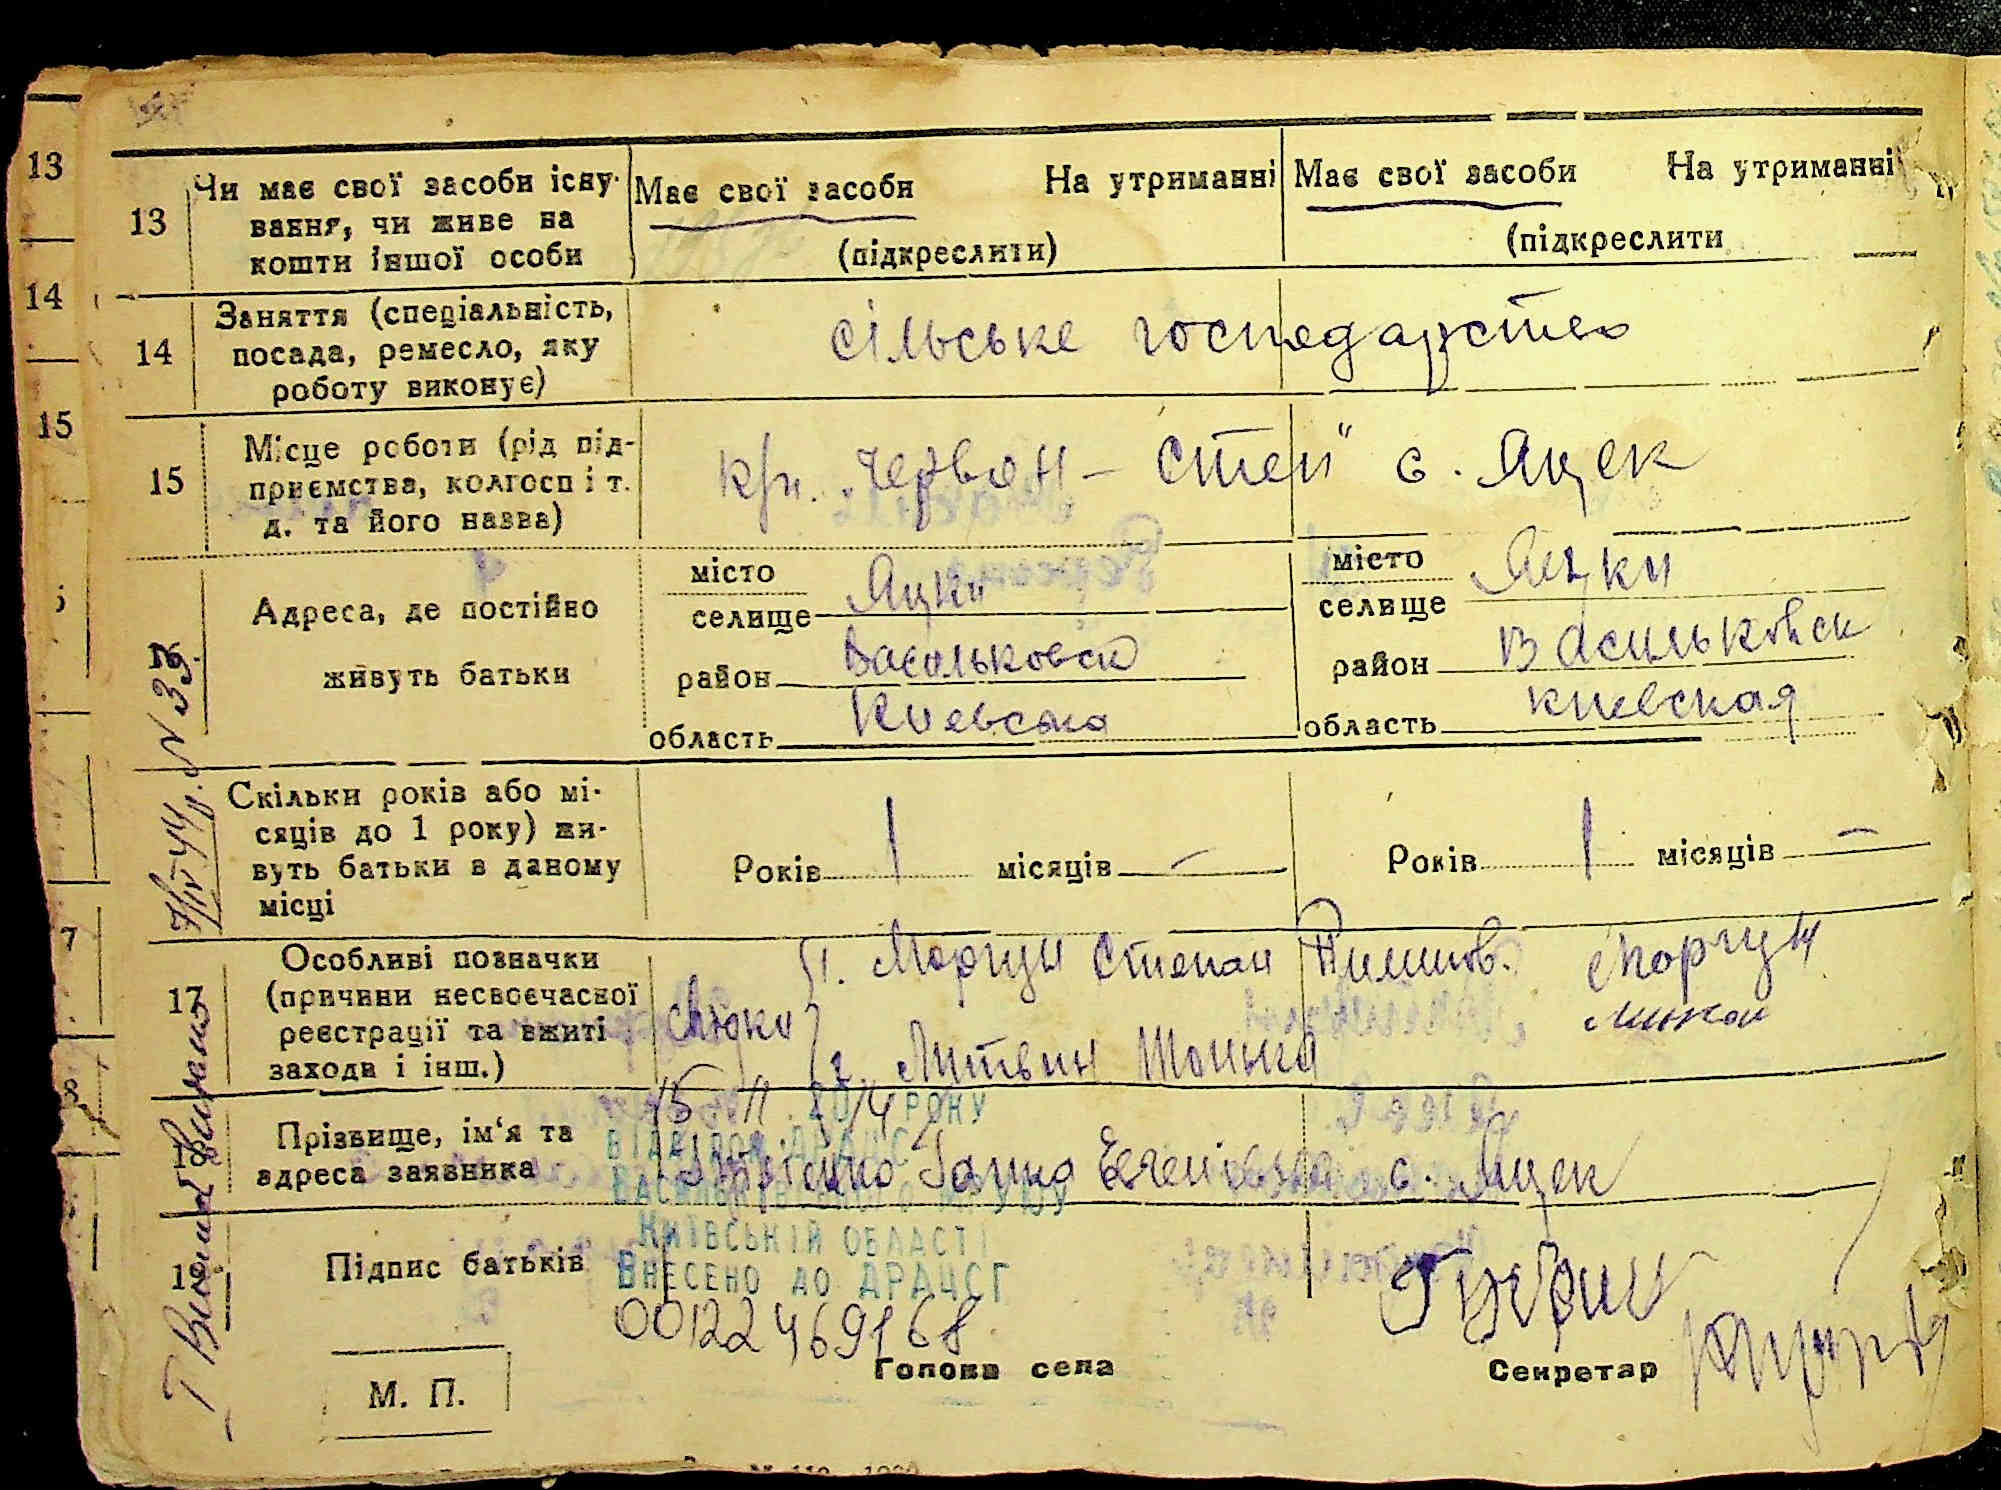 13
14
15
7
8
13
Чи має свої засоби існу-
вання, чи живе на
кошти іншої особи
Має свої засоби На утриманні
(підкреслити)
Має свої засоби На утриманні
(підкреслити
14
Заняття (спеціальність,
посада, ремесло, яку
роботу виконує)
сільське господарство
15
Місце роботи (рід під-
приємства, колгосп і т.
д. та його назва)
"Червон - Степ" с. Яцек
Адреса, де постійно
живуть батьки
місто
селище Яцки
район Васильковск
область Киевська
місто
селище Яцки
район Васильковск
область Киевская
N 33
Скільки років або мі-
сяців до 1 року) жи-
вуть батьки в даному
місці
Років 1 місяців –
Років 1 місяців –
17
Особливі позначки
(причини несвоєчасної
реєстрації та вжиті
заходи і інш.)
1. Моргун Степан
Моргун
2. Литвин
Прізвище, ім'я та
адреса заявника
Ганна Евгеніевна с. Яцек
15 11 2014 РОКУ
ВІДДІЛОМ ДРАЦС
КИЇВСЬКІЙ ОБЛАСТІ
ВНЕСЕНО ДО ДРАЦСГ
00122469168
Підпис батьків
М. П.
Голова села
Секретар